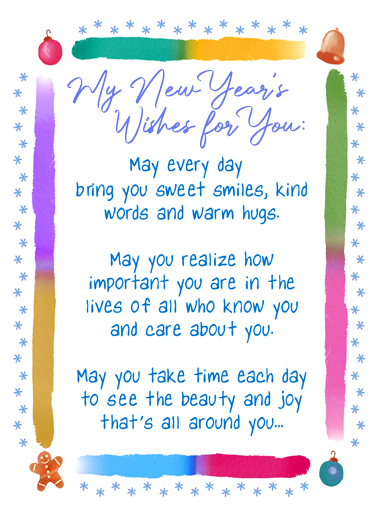 My New Year's
Wishes for You:
May every day
bring you sweet smiles, kind
words and warm hugs.
May you realize how
important you are in the
lives of all who know you
and care about you.
May you take time each day
to see the beauty and joy
that's all around you...